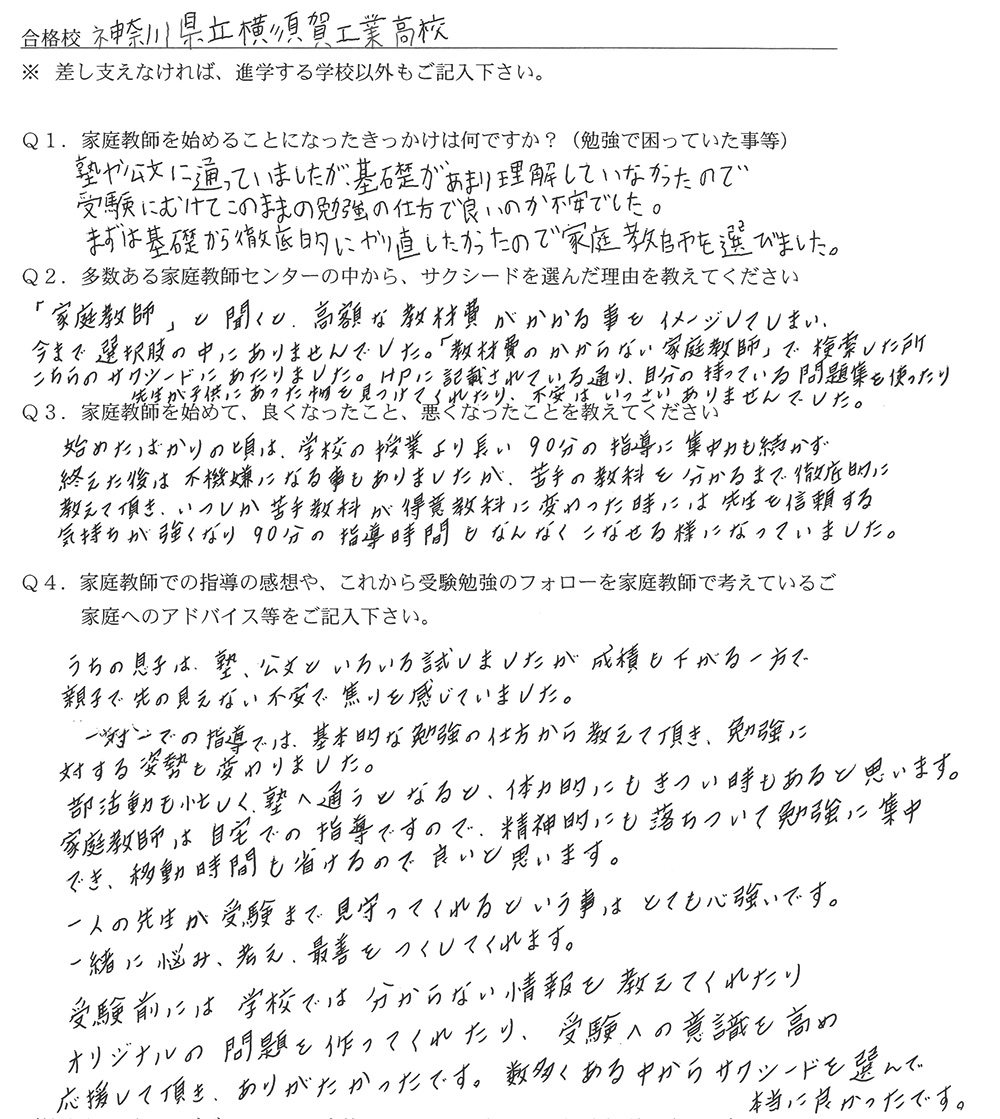 合格校 神奈川県立横須賀工業高校
※ 差し支えなければ、進学する学校以外もご記入下さい。
Q1．家庭教師を始めることになったきっかけは何ですか？（勉強で困っていた事等）
塾や公文に通っていましたが、基礎があまり理解していなかったので
受験にむけてこのままの勉強の仕方で良いのか不安でした。
まずは基礎から徹底的にやり直したかったので家庭教師を選びました。
Q2．多数ある家庭教師センターの中から、サクシードを選んだ理由を教えてください
「家庭教師」と聞くと、高額な教材費がかかる事をイメージしてしまい、
今まで選択肢の中にありませんでした。「教材費のかからない家庭教師」で検索した所
こちらのサクシードにあたりました。HPに記載されている通り、自分の持っている問題集を使ったり
先生が子供にあった物を見つけてくれたり、不安はいっさいありませんでした。
Q3．家庭教師を始めて、良くなったこと、悪くなったことを教えてください
始めたばかりの頃は、学校の授業より長い90分の指導に集中力も続かず
終えた後は不機嫌になる事もありましたが、苦手の教科を分かるまで徹底的に
教えて頂き、いつしか苦手教科が得意教科に変わった時には先生を信頼する
気持ちが強くなり90分の指導時間もなんなくこなせる様になっていました。
Q4．家庭教師での指導の感想や、これから受験勉強のフォローを家庭教師で考えているご
家庭へのアドバイス等をご記入下さい。
うちの息子は、塾、公文といろいろ試しましたが成績も下がる一方で
親子で先の見えない不安で焦りを感じていました。
一対一での指導では、基本的な勉強の仕方から教えて頂き、勉強に
対する姿勢も変わりました。
部活動も忙しく、塾へ通うとなると、体力的にもきつい時もあると思います。
家庭教師は自宅での指導ですので、精神的にも落ちついて勉強に集中
でき、移動時間も省けるので良いと思います。
一人の先生が受験まで見守ってくれるという事はとても心強いです。
一緒に悩み、考え、最善をつくしてくれます。
受験前には学校では分からない情報を教えてくれたり
オリジナルの問題を作ってくれたり、受験への意識を高め
応援して頂き、ありがたかったです。数多くある中からサクシードを選んで
本当に良かったです。